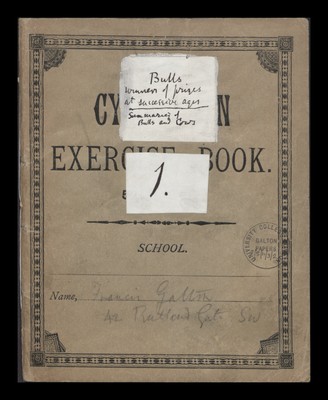 Bulls
winners of prizes
at successive ages
Summaries of
Bulls and Cows
CY N
EXERCISE BOOK.
1.
SCHOOL.
UNIVERSITY COLLEGE
GALTON
PAPERS
Name, Francis Galton
42 Rutland Gate SW